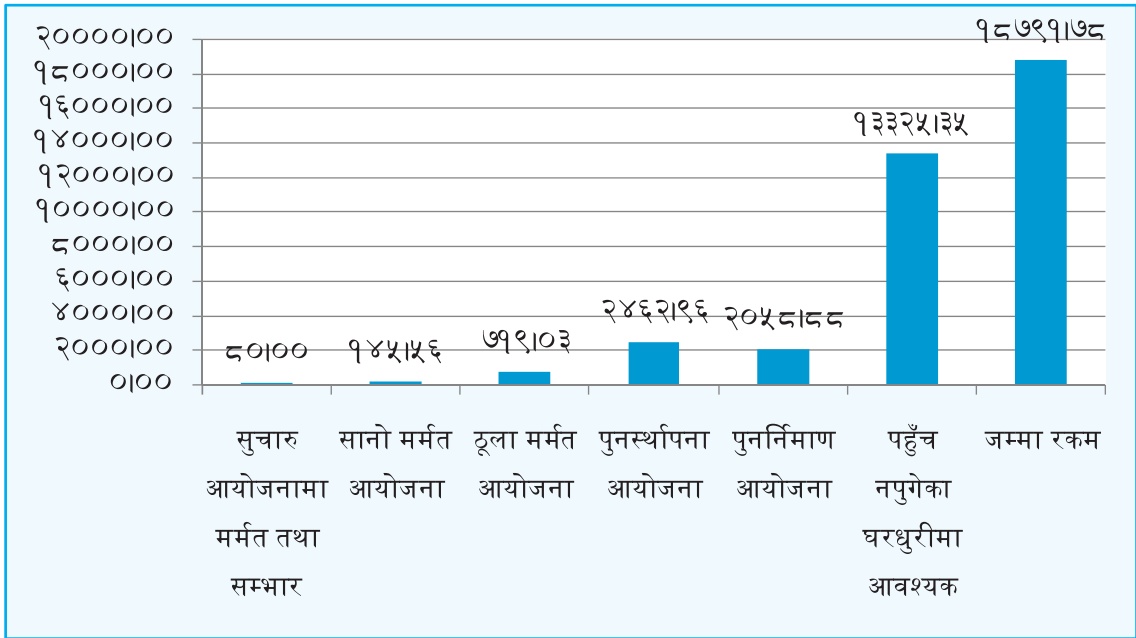 २००००।००
१८०००।००
१६०००।००
१४०००।००
१२०००।००
१००००।००
८०००।००
६०००।००
४०००।००
२०००।००
०।००
८०।००
१४५।५६
७१९।०३
२४६२।९६
२०५८।८८
१३३२५।३५
१८७९१।७८
सुचारु
आयोजनामा
मर्मत तथा
सम्भार
सानो मर्मत
आयोजना
ठूला मर्मत
आयोजना
पुनर्स्थापना
आयोजना
पुनर्निमाण
आयोजना
पहुँच
नपुगेका
घरधुरीमा
आवश्यक
जम्मा रकम